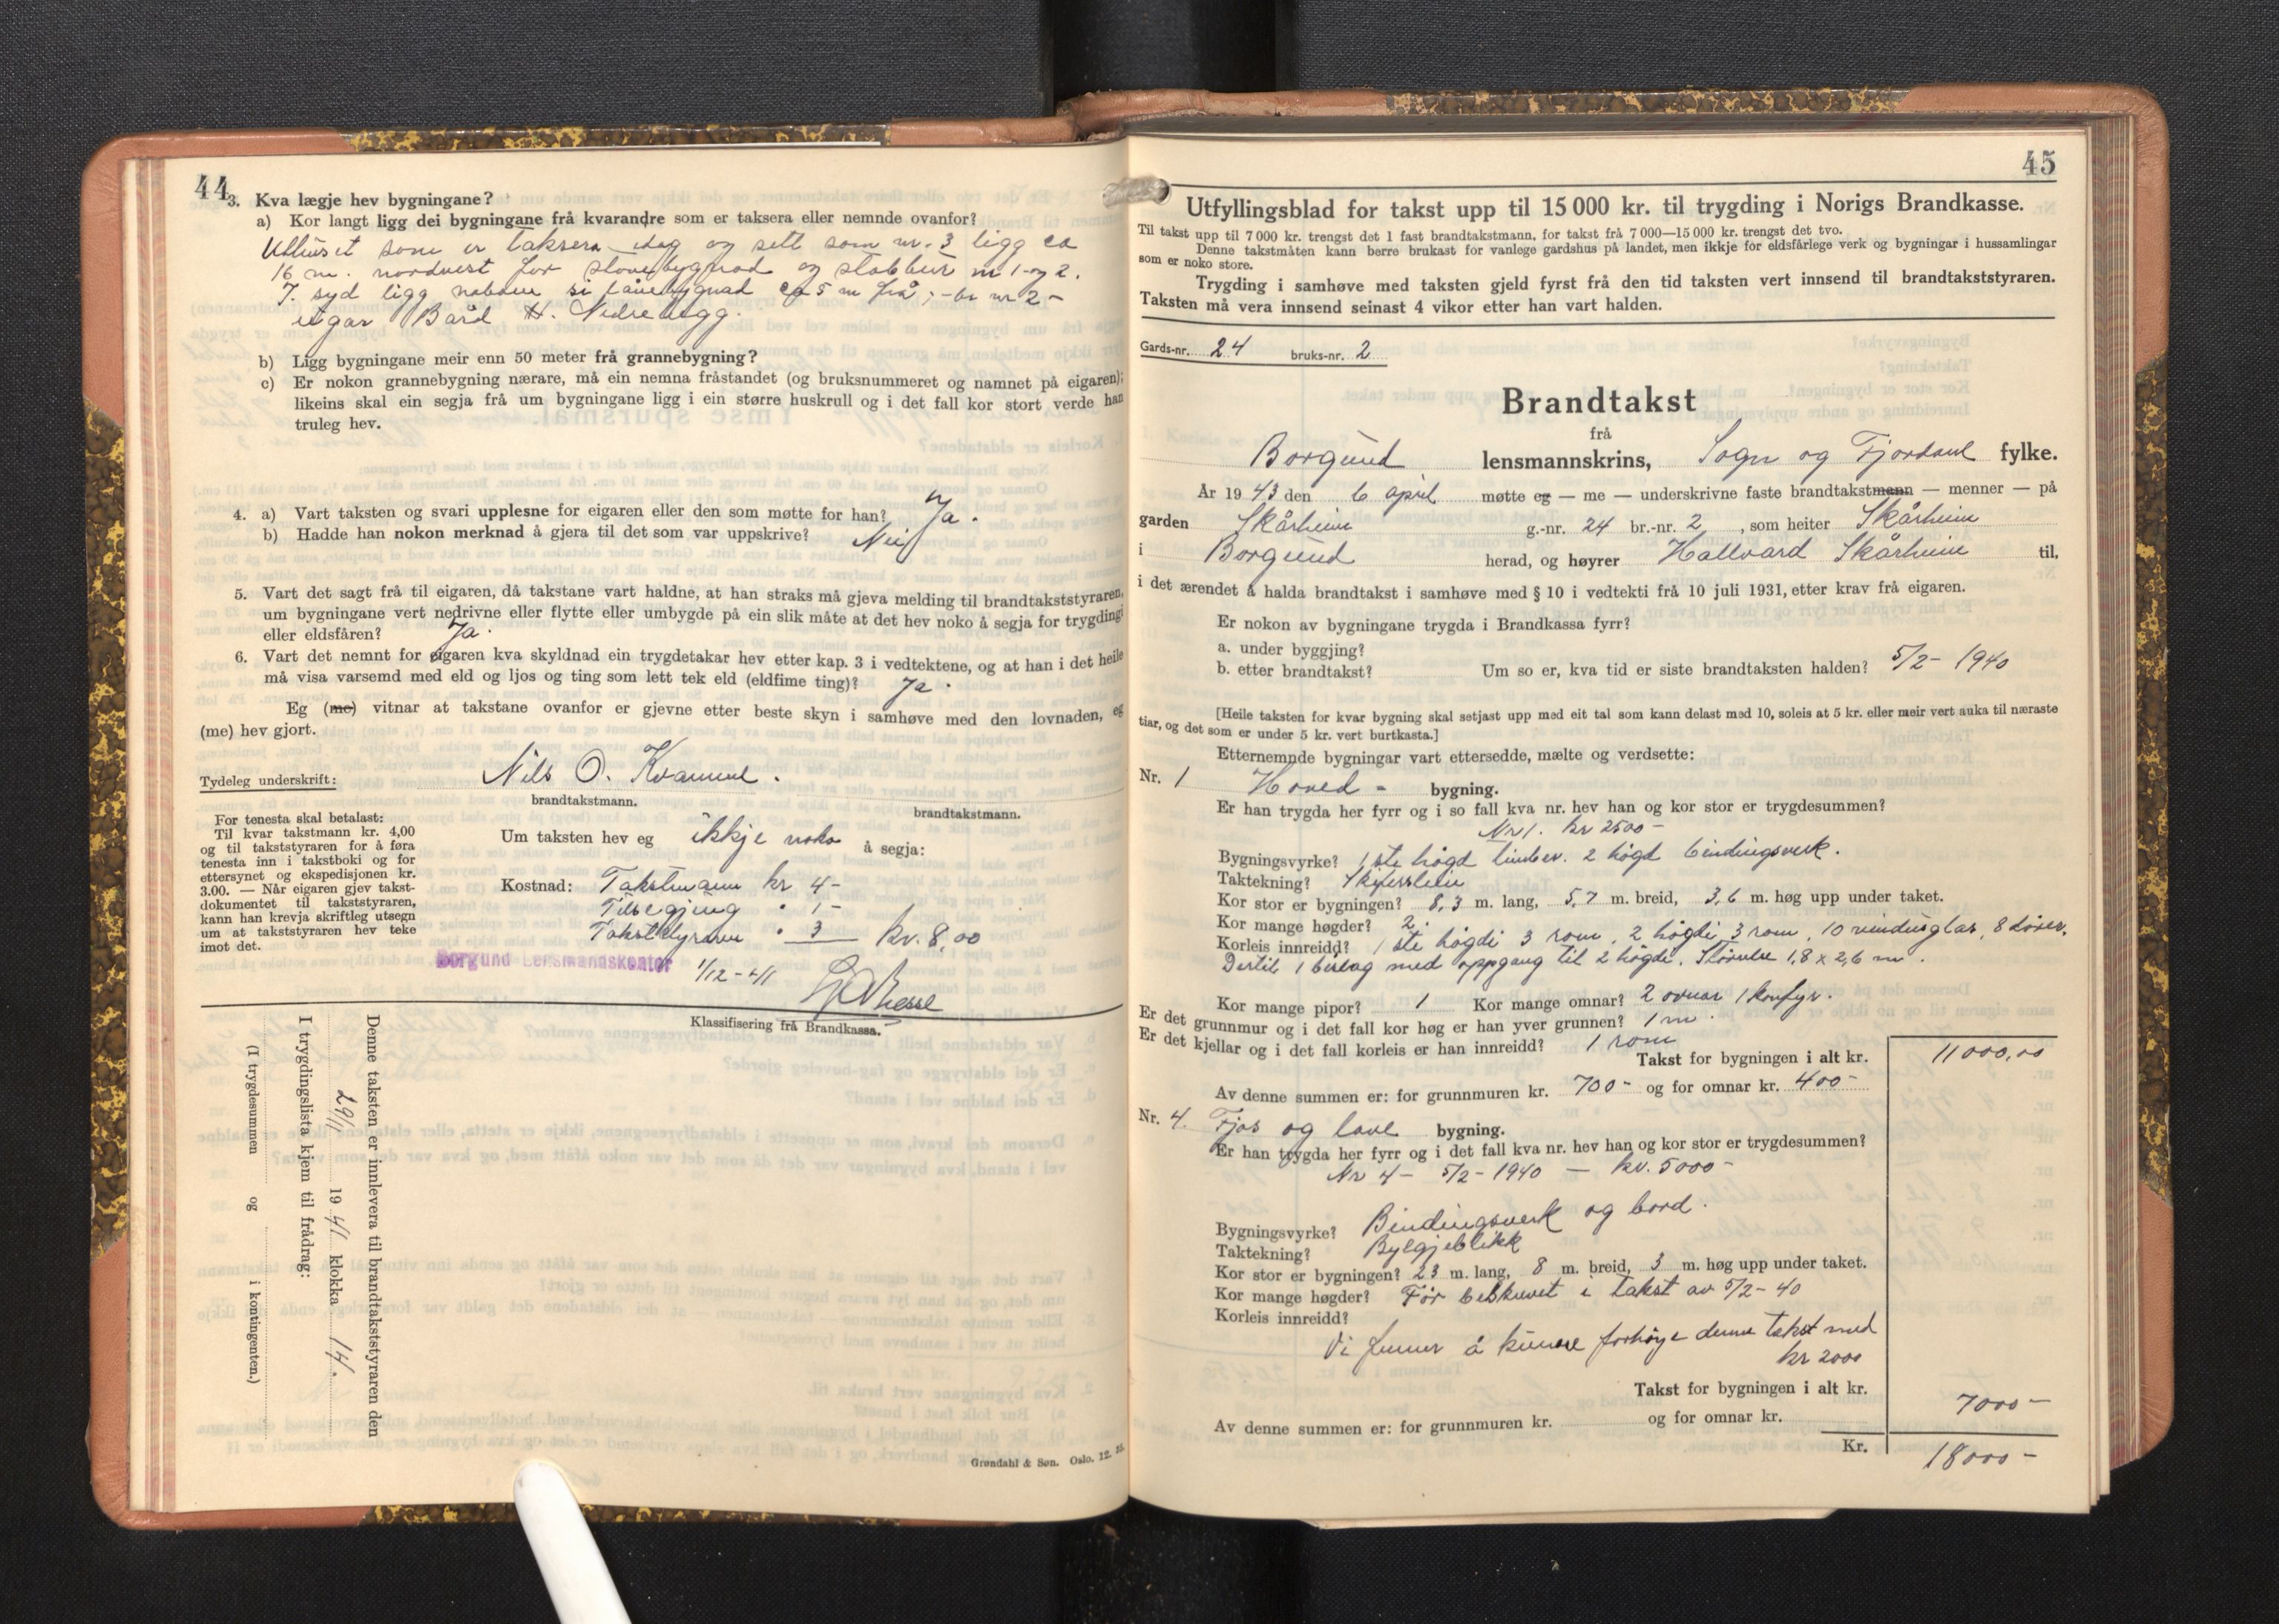 44
3. Kva lægje hev bygningane?
a) Kor langt ligg dei bygningane frå kvarandre som er taksera eller nemnde ovanfor?
Uthuset som er taksera idag og sett som nr. 3 ligg ca
16 m. nordvest for stovebygnad og stabbur nr 1 og 2.
I syd ligg naboen si bygnad ca 5 m frå, - br nr 2 -
eigar Bård H. Nedrehegg.
b) Ligg bygningane meir enn 50 meter frå grannebygning?
c) Er nokon grannebygning nærare, må ein nemna fråstandet (og bruksnummeret og namnet på eigaren);
likeins skal ein segja frå um bygningane ligg i ein større huskrull og i det fall kor stort verde han
truleg hev.
4. a) Vart taksten og svari upplesne for eigaren eller den som møtte for han? Ja.
b) Hadde han nokon merknad å gjera til det som var uppskrive? Nei
5. Vart det sagt frå til eigaren, då takstane vart haldne, at han straks må gjeva melding til brandtakststyraren,
um bygningane vert nedrivne eller flytte eller umbygde på ein slik måte at det hev noko å segja for trygdingi
eller eldsfåren? Ja.
6. Vart det nemnt for eigaren kva skyldnad ein trygdetakar hev etter kap. 3 i vedtektene, og at han i det heile
må visa varsemd med eld og ljos og ting som lett tek eld (eldfime ting)? Ja.
Eg (me) vitnar at takstane ovanfor er gjevne etter beste skyn i samhøve med den lovnaden, eg
(me) hev gjort.
Tydeleg underskrift: Nils O. Kvamme.
brandtakstmann. brandtakstmann.
For tenesta skal betalast:
Til kvar takstmann kr. 4,00
og til takststyraren for å føra
tenesta inn i takstboki og for
ettersynet og ekspedisjonen kr.
3.00. — Når eigaren gjev takst-
dokumentet til takststyraren,
kann han krevja skriftleg utsegn
um at takststyraren hev teke
imot det.
Um taksten hev eg ikkje noko å segja:
Kostnad: Takstmann kr 4-
Tilsegjing " 1-
Takststyraren " 3 kr. 8,00
Borgund Lensmannskontor 1/12-41
Klassifisering frå Brandkassa.
Denne taksten er innlevera til brandtakststyraren den
29/11 1941 klokka 14.
I trygdingslista kjem til frådrag:
(I trygdesummen og i kontingenten.)
Grøndahl & Søn. Oslo. 12. 35.
45
Utfyllingsblad for takst upp til 15 000 kr. til trygding i Norigs Brandkasse.
Til takst upp til 7 000 kr. trengst det 1 fast brandtakstmann, for takst frå 7 000—15 000 kr. trengst det tvo.
Denne takstmåten kann berre brukast for vanlege gardshus på landet, men ikkje for eldsfårlege verk og bygningar i hussamlingar
som er noko store.
Trygding i samhøve med taksten gjeld fyrst frå den tid taksten vert innsend til brandtakststyraren.
Taksten må vera innsend seinast 4 vikor etter han vart halden.
Gards-nr. 24 bruks-nr. 2
Brandtakst
frå
Borgund lensmannskrins, Sogn og Fjordane fylke.
År 1943 den 6 april møtte eg — me — underskrivne faste brandtakstmann — menner — på
garden Skårheim g.-nr. 24 br.-nr. 2, som heiter Skårheim
i Borgund herad, og høyrer Hallvard Skårheim til,
i det ærendet å halda brandtakst i samhøve med § 10 i vedtekti frå 10 juli 1931, etter krav frå eigaren.
Er nokon av bygningane trygda i Brandkassa fyrr?
a. under byggjing?
b. etter brandtakst? Um so er, kva tid er siste brandtaksten halden? 5/2- 1940
[Heile taksten for kvar bygning skal setjast upp med eit tal som kann delast med 10, soleis at 5 kr. eller meir vert auka til næraste
tiar, og det som er under 5 kr. vert burtkasta.]
Etternemnde bygningar vart ettersedde, mælte og verdsette:
Nr. 1 Hoved- bygning.
Er han trygda her fyrr og i so fall kva nr. hev han og kor stor er trygdesummen?
Nr 1. kr 2500-
Bygningsvyrke? 1ste høgd timber. 2 høgd bindingsverk.
Taktekning? Skiferstein
Kor stor er bygningen? 8,3 m. lang, 5,7 m. breid, 3,6 m. høg upp under taket.
Kor mange høgder? 2.
Korleis innreidd? 1ste høgdi 3 rom, 2 høgdi 3 rom, 10 vindusglas, 8 dører.
Dertil 1 bislag med oppgang til 2 høgde. Størrelse 1,8 x 2,6 m.
Kor mange pipor? 1 Kor mange omnar? 2 ovnar 1 komfyr.
Er det grunnmur og i det fall kor høg er han yver grunnen? 1 m.
Er det kjellar og i det fall korleis er han innreidd? 1 rom
Takst for bygningen i alt kr. 11000,00
Av denne summen er: for grunnmuren kr. 700- og for omnar kr. 400-
Nr. 4. Fjos og løve bygning.
Er han trygda her fyrr og i det fall kva nr. hev han og kor stor er trygdesummen?
Nr 4- 5/2-1940 — kr. 5000-
Bygningsvyrke? Bindingsverk og bord.
Taktekning? Bylgjeblikk
Kor stor er bygningen? 23 m. lang, 8 m. breid, 3 m. høg upp under taket.
Kor mange høgder? Før beskrevet i takst av 5/2-40
Korleis innreidd?
Vi finner å kunne forhøye denne takst med
kr 2000
Takst for bygningen i alt kr. 7000-
Av denne summen er: for grunnmuren kr. og for omnar kr.
Kr. 18000-